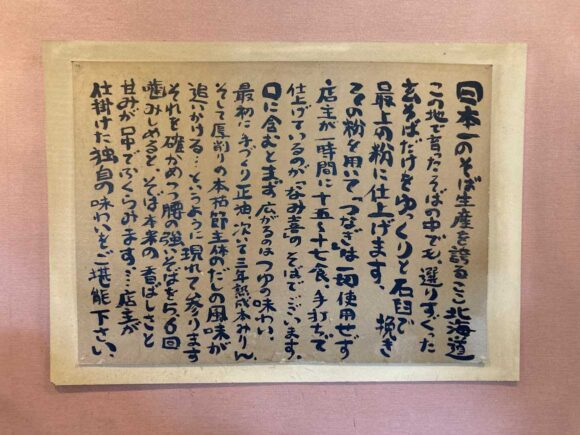 日本一のそば生産を誇るここ北海道
この地で育ったそばの中でも、選りすぐった
玄そばだけをゆっくりと石臼で挽き
最上の粉に仕上げます、
その粉を用いて「つなぎ」は一切使用せず
店主が一時間に十五〜十七食、手打ちで
仕上げているのが呑み喜のそばでございます。
口に含むとまず広がるのはつゆの味わい、
最初に手づくり正油、次いで三年熟成本みりん、
そして厚削りの本枯節主体のだしの風味が
追いかける…というように現れて参ります
それを確かめつつ腰の強いそばを5、6回
噛みしめると そば本来の香ばしさと
甘みが口中でふくらみます…店主が
仕掛けた独自の味わいをご堪能下さい、